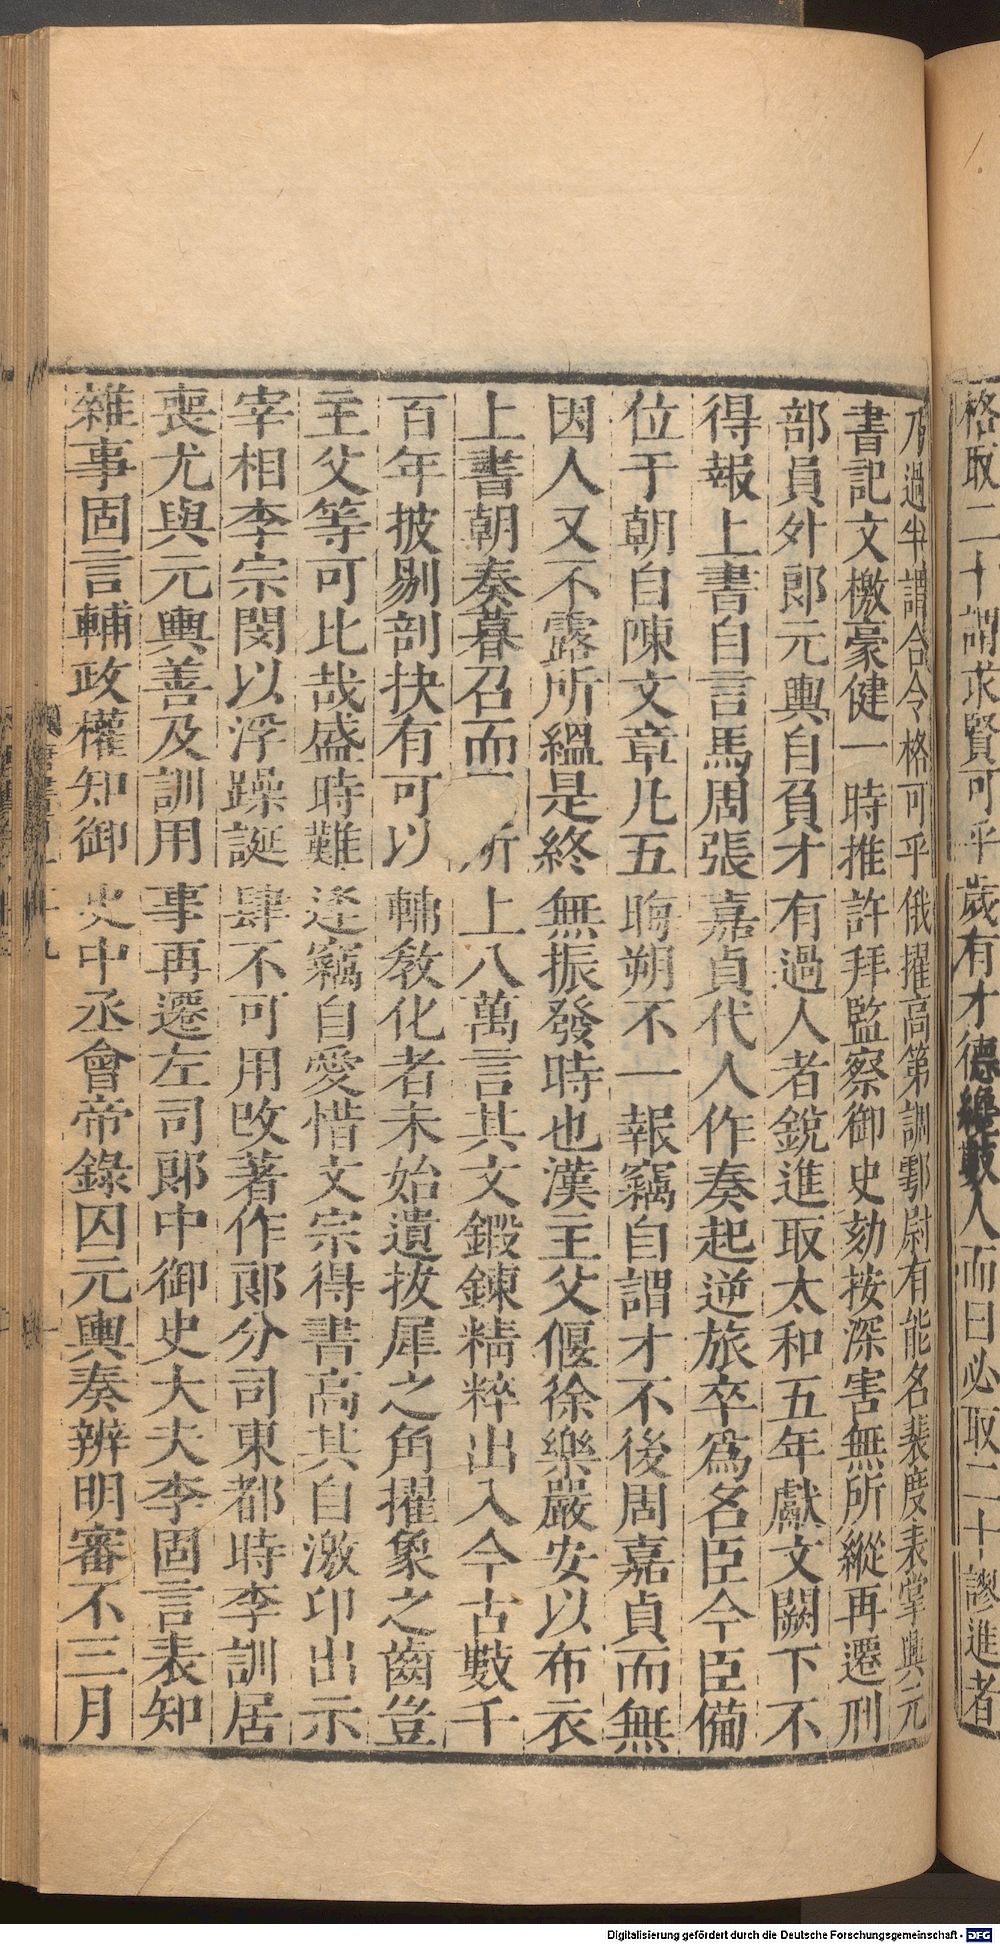 格取二十謂求賢可乎歲有才德纔數人而曰必取二十謬進者
乃過半謂合令格可乎俄擢高第調鄠尉有能名裴度表掌興元
書記文檄豪健一時推許拜監察御史劾按深害無所縱再遷刑
部員外郎元輿自負才有過人者銳進取太和五年獻文闕下不
得報上書自言馬周張嘉貞代人作奏起逆旅卒爲名臣今臣備
位于朝自陳文章凡五晦朔不一報竊自謂才不後周嘉貞而無
因人又不露所縕是終無振發時也漢主父偃徐樂嚴安以布衣
上書朝奏暮召而 所上八萬言其文鍛鍊精粹出入今古數千
百年披剔剖抉有可以輔教化者未始遺拔犀之角擢象之齒豈
主父等可比哉盛時難逢竊自愛惜文宗得書高其自激卬出示
宰相李宗閔以浮躁誕肆不可用改著作郎分司東都時李訓居
喪尤與元輿善及訓用事再遷左司郎中御史大夫李固言表知
雜事固言輔政權知御史中丞會帝錄囚元輿奏辨明審不三月
Digitalisierung gefördert durch die Deutsche Forschungsgemeinschaft - DFG